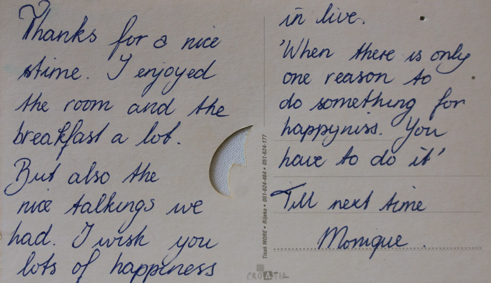 Thanks for a nice
stime. I enjoyed
the room and the
breakfast a lot.
But also the
nice talkings we
had. I wish you
lots of happiness
in live.
'When there is only
one reason to
do something for
happyniss. You
have to do it'
Till next time
Monique.
CROATIA